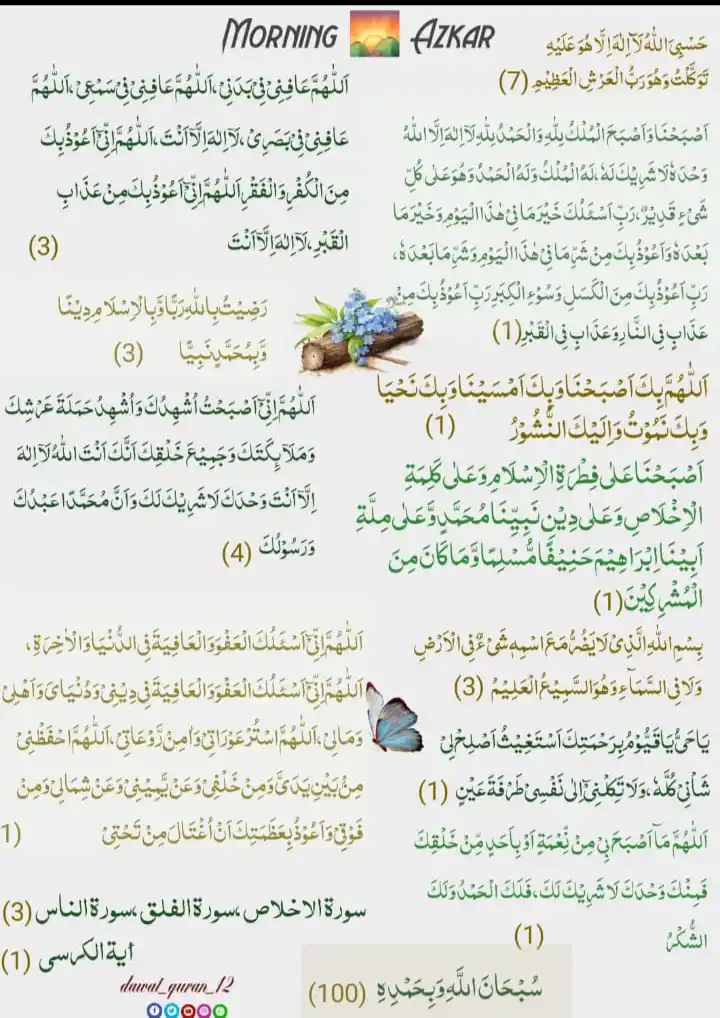 MORNING AZKAR
حَسْبِیَ اللّٰهُ لَاۤ اِلٰهَ اِلَّا هُوَ عَلَیْهِ
تَوَكَّلْتُ وَهُوَ رَبُّ الْعَرْشِ الْعَظِیْمِ (7)
اَصْبَحْنَا وَاَصْبَحَ الْمُلْكُ لِلّٰهِ وَالْحَمْدُ لِلّٰهِ لَاۤ اِلٰهَ اِلَّا اللّٰهُ
وَحْدَهٗ لَا شَرِیْكَ لَهٗ، لَهُ الْمُلْكُ وَلَهُ الْحَمْدُ وَهُوَ عَلٰی كُلِّ
شَیْءٍ قَدِیْرٌ، رَبِّ اَسْئَلُكَ خَیْرَ مَا فِیْ هٰذَا الْیَوْمِ وَخَیْرَ مَا
بَعْدَهٗ وَاَعُوْذُ بِكَ مِنْ شَرِّ مَا فِیْ هٰذَا الْیَوْمِ وَشَرِّ مَا بَعْدَهٗ،
رَبِّ اَعُوْذُ بِكَ مِنَ الْكَسَلِ وَسُوْءِ الْكِبَرِ رَبِّ اَعُوْذُ بِكَ مِنْ
عَذَابٍ فِی النَّارِ وَعَذَابٍ فِی الْقَبْرِ (1)
اَللّٰهُمَّ بِكَ اَصْبَحْنَا وَبِكَ اَمْسَیْنَا وَبِكَ نَحْیَا
وَبِكَ نَمُوْتُ وَاِلَیْكَ النُّشُوْرُ (1)
اَصْبَحْنَا عَلٰی فِطْرَةِ الْاِسْلَامِ وَعَلٰی كَلِمَةِ
الْاِخْلَاصِ وَعَلٰی دِیْنِ نَبِیِّنَا مُحَمَّدٍ وَّعَلٰی مِلَّةِ
اَبِیْنَا اِبْرَاهِیْمَ حَنِیْفًا مُّسْلِمًا وَّمَا كَانَ مِنَ
الْمُشْرِكِیْنَ (1)
بِسْمِ اللّٰهِ الَّذِیْ لَا یَضُرُّ مَعَ اسْمِهٖ شَیْءٌ فِی الْاَرْضِ
وَلَا فِی السَّمَآءِ وَهُوَ السَّمِیْعُ الْعَلِیْمُ (3)
یَا حَیُّ یَا قَیُّوْمُ بِرَحْمَتِكَ اَسْتَغِیْثُ اَصْلِحْ لِیْ
شَاْنِیْ كُلَّهٗ، وَلَا تَكِلْنِیْۤ اِلٰی نَفْسِیْ طَرْفَةَ عَیْنٍ (1)
اَللّٰهُمَّ مَاۤ اَصْبَحَ بِیْ مِنْ نِّعْمَةٍ اَوْ بِاَحَدٍ مِّنْ خَلْقِكَ
فَمِنْكَ وَحْدَكَ لَا شَرِیْكَ لَكَ، فَلَكَ الْحَمْدُ وَلَكَ
الشُّكْرُ (1)
سُبْحَانَ اللَّهِ وَبِحَمْدِهِ (100)
اَللّٰهُمَّ عَافِنِیْ فِیْ بَدَنِیْ، اَللّٰهُمَّ عَافِنِیْ فِیْ سَمْعِیْ، اَللّٰهُمَّ
عَافِنِیْ فِیْ بَصَرِیْ، لَاۤ اِلٰهَ اِلَّاۤ اَنْتَ، اَللّٰهُمَّ اِنِّیْۤ اَعُوْذُ بِكَ
مِنَ الْكُفْرِ وَالْفَقْرِ اَللّٰهُمَّ اِنِّیْۤ اَعُوْذُ بِكَ مِنْ عَذَابِ
الْقَبْرِ، لَاۤ اِلٰهَ اِلَّاۤ اَنْتَ (3)
رَضِیْتُ بِاللّٰهِ رَبًّا وَّبِالْاِسْلَامِ دِیْنًا
وَّبِمُحَمَّدٍ نَبِیًّا (3)
اَللّٰهُمَّ اِنِّیْۤ اَصْبَحْتُ اُشْهِدُكَ وَاُشْهِدُ حَمَلَةَ عَرْشِكَ
وَمَلَآئِكَتَكَ وَجَمِیْعَ خَلْقِكَ اَنَّكَ اَنْتَ اللّٰهُ لَاۤ اِلٰهَ
اِلَّاۤ اَنْتَ وَحْدَكَ لَا شَرِیْكَ لَكَ وَاَنَّ مُحَمَّدًا عَبْدُكَ
وَرَسُوْلُكَ (4)
اَللّٰهُمَّ اِنِّیْۤ اَسْئَلُكَ الْعَفْوَ وَالْعَافِیَةَ فِی الدُّنْیَا وَالْاٰخِرَةِ،
اَللّٰهُمَّ اِنِّیْۤ اَسْئَلُكَ الْعَفْوَ وَالْعَافِیَةَ فِیْ دِیْنِیْ وَدُنْیَایَ وَاَهْلِیْ
وَمَالِیْ، اَللّٰهُمَّ اسْتُرْ عَوْرَاتِیْ وَاٰمِنْ رَّوْعَاتِیْ، اَللّٰهُمَّ احْفَظْنِیْ
مِنْۢ بَیْنِ یَدَیَّ وَمِنْ خَلْفِیْ وَعَنْ یَّمِیْنِیْ وَعَنْ شِمَالِیْ وَمِنْ
فَوْقِیْ وَاَعُوْذُ بِعَظَمَتِكَ اَنْ اُغْتَالَ مِنْ تَحْتِیْ 1)
سورة الاخلاص، سورة الفلق، سورة الناس (3)
أية الكرسى (1)
dawat_quran_12